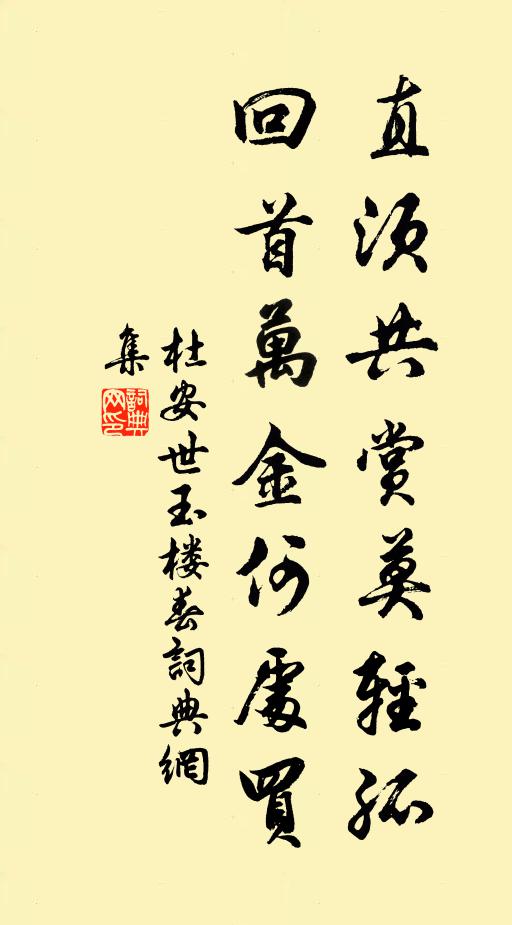 直須共賞莫輕孤
回首萬金何處買
杜安世玉楼春詞典網
集
詞典
网印